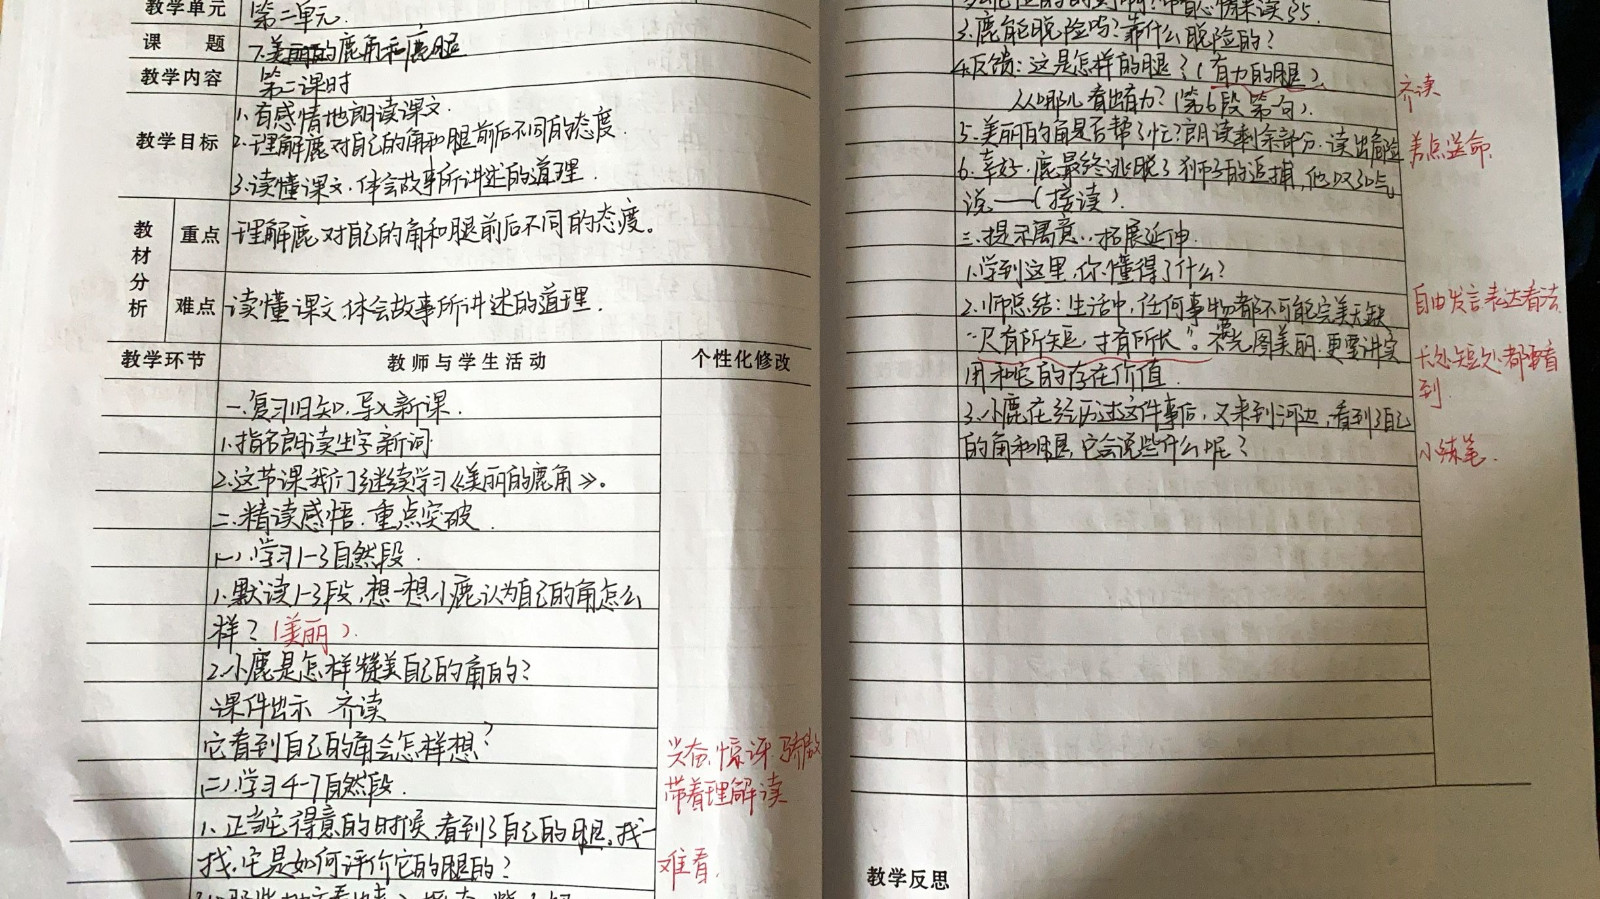 教学单元 第二单元.
课题 7.美丽的鹿角和鹿腿
教学内容 第二课时
教学目标
1.有感情地朗读课文.
2.理解鹿对自己的角和腿前后不同的态度.
3.读懂课文.体会故事所讲述的道理.
教材分析
重点 理解鹿对自己的角和腿前后不同的态度。
难点 读懂课文,体会故事所讲述的道理.
教学环节 教师与学生活动 个性化修改
一.复习旧知.导入新课.
1.指名朗读生字新词
2.这节课我们继续学习《美丽的鹿角》。
二.精读感悟.重点突破.
(一).学习1-3自然段.
1.默读1-3段,想一想小鹿认为自己的角怎么
样?(美丽).
2.小鹿是怎样赞美自己的角的?
课件出示 齐读
它看到自己的角会怎样想?
兴奋.惊讶.骄傲
(二).学习4-7自然段.
带着理解读
1.正当它得意的时候,看到了自己的腿,找一
找.它是如何评价它的腿的?
难看.
3.鹿能脱险吗?靠什么脱险的?
4.反馈:这是怎样的腿?(有力的腿).
齐读
从哪儿看出有力?(第6段第一句).
5.美丽的角是否帮了忙?朗读剩余部分.读出危险
差点送命.
6.幸好.鹿最终逃脱了狮子的追捕,他叹了口气
说——(接读).
三.提示寓意..拓展延伸.
1.学到这里,你懂得了什么?
自由发言表达看法.
2.师总结:生活中,任何事物都不可能完美无缺
“尺有所短,寸有所长”。不要光图美丽.更要讲实
长处短处都要看
到.
用和它的存在价值.
3.小鹿在经历过这件事后,又来到河边,看到了自己
的角和腿,它会说些什么呢?
小练笔.
教学反思